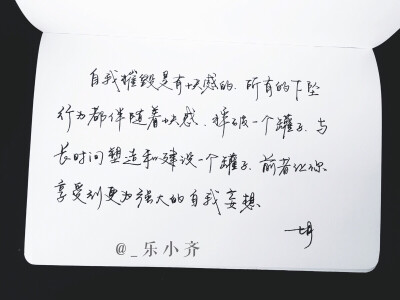 自我摧毁是有快感的.所有的下坠
行为都伴随着快感.摔破一个罐子.与
长时间塑造和建设一个罐子.前者让你
享受到更为强大的自我妄想.
@_乐小齐